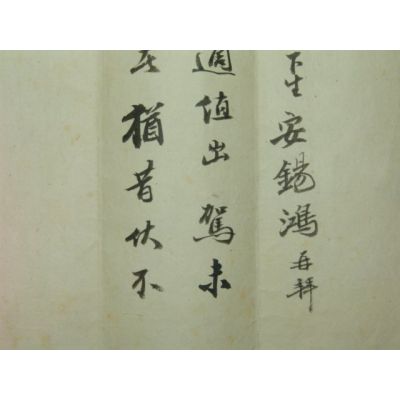 下生安錫鴻再拜
適值出駕未
猶昔伏不